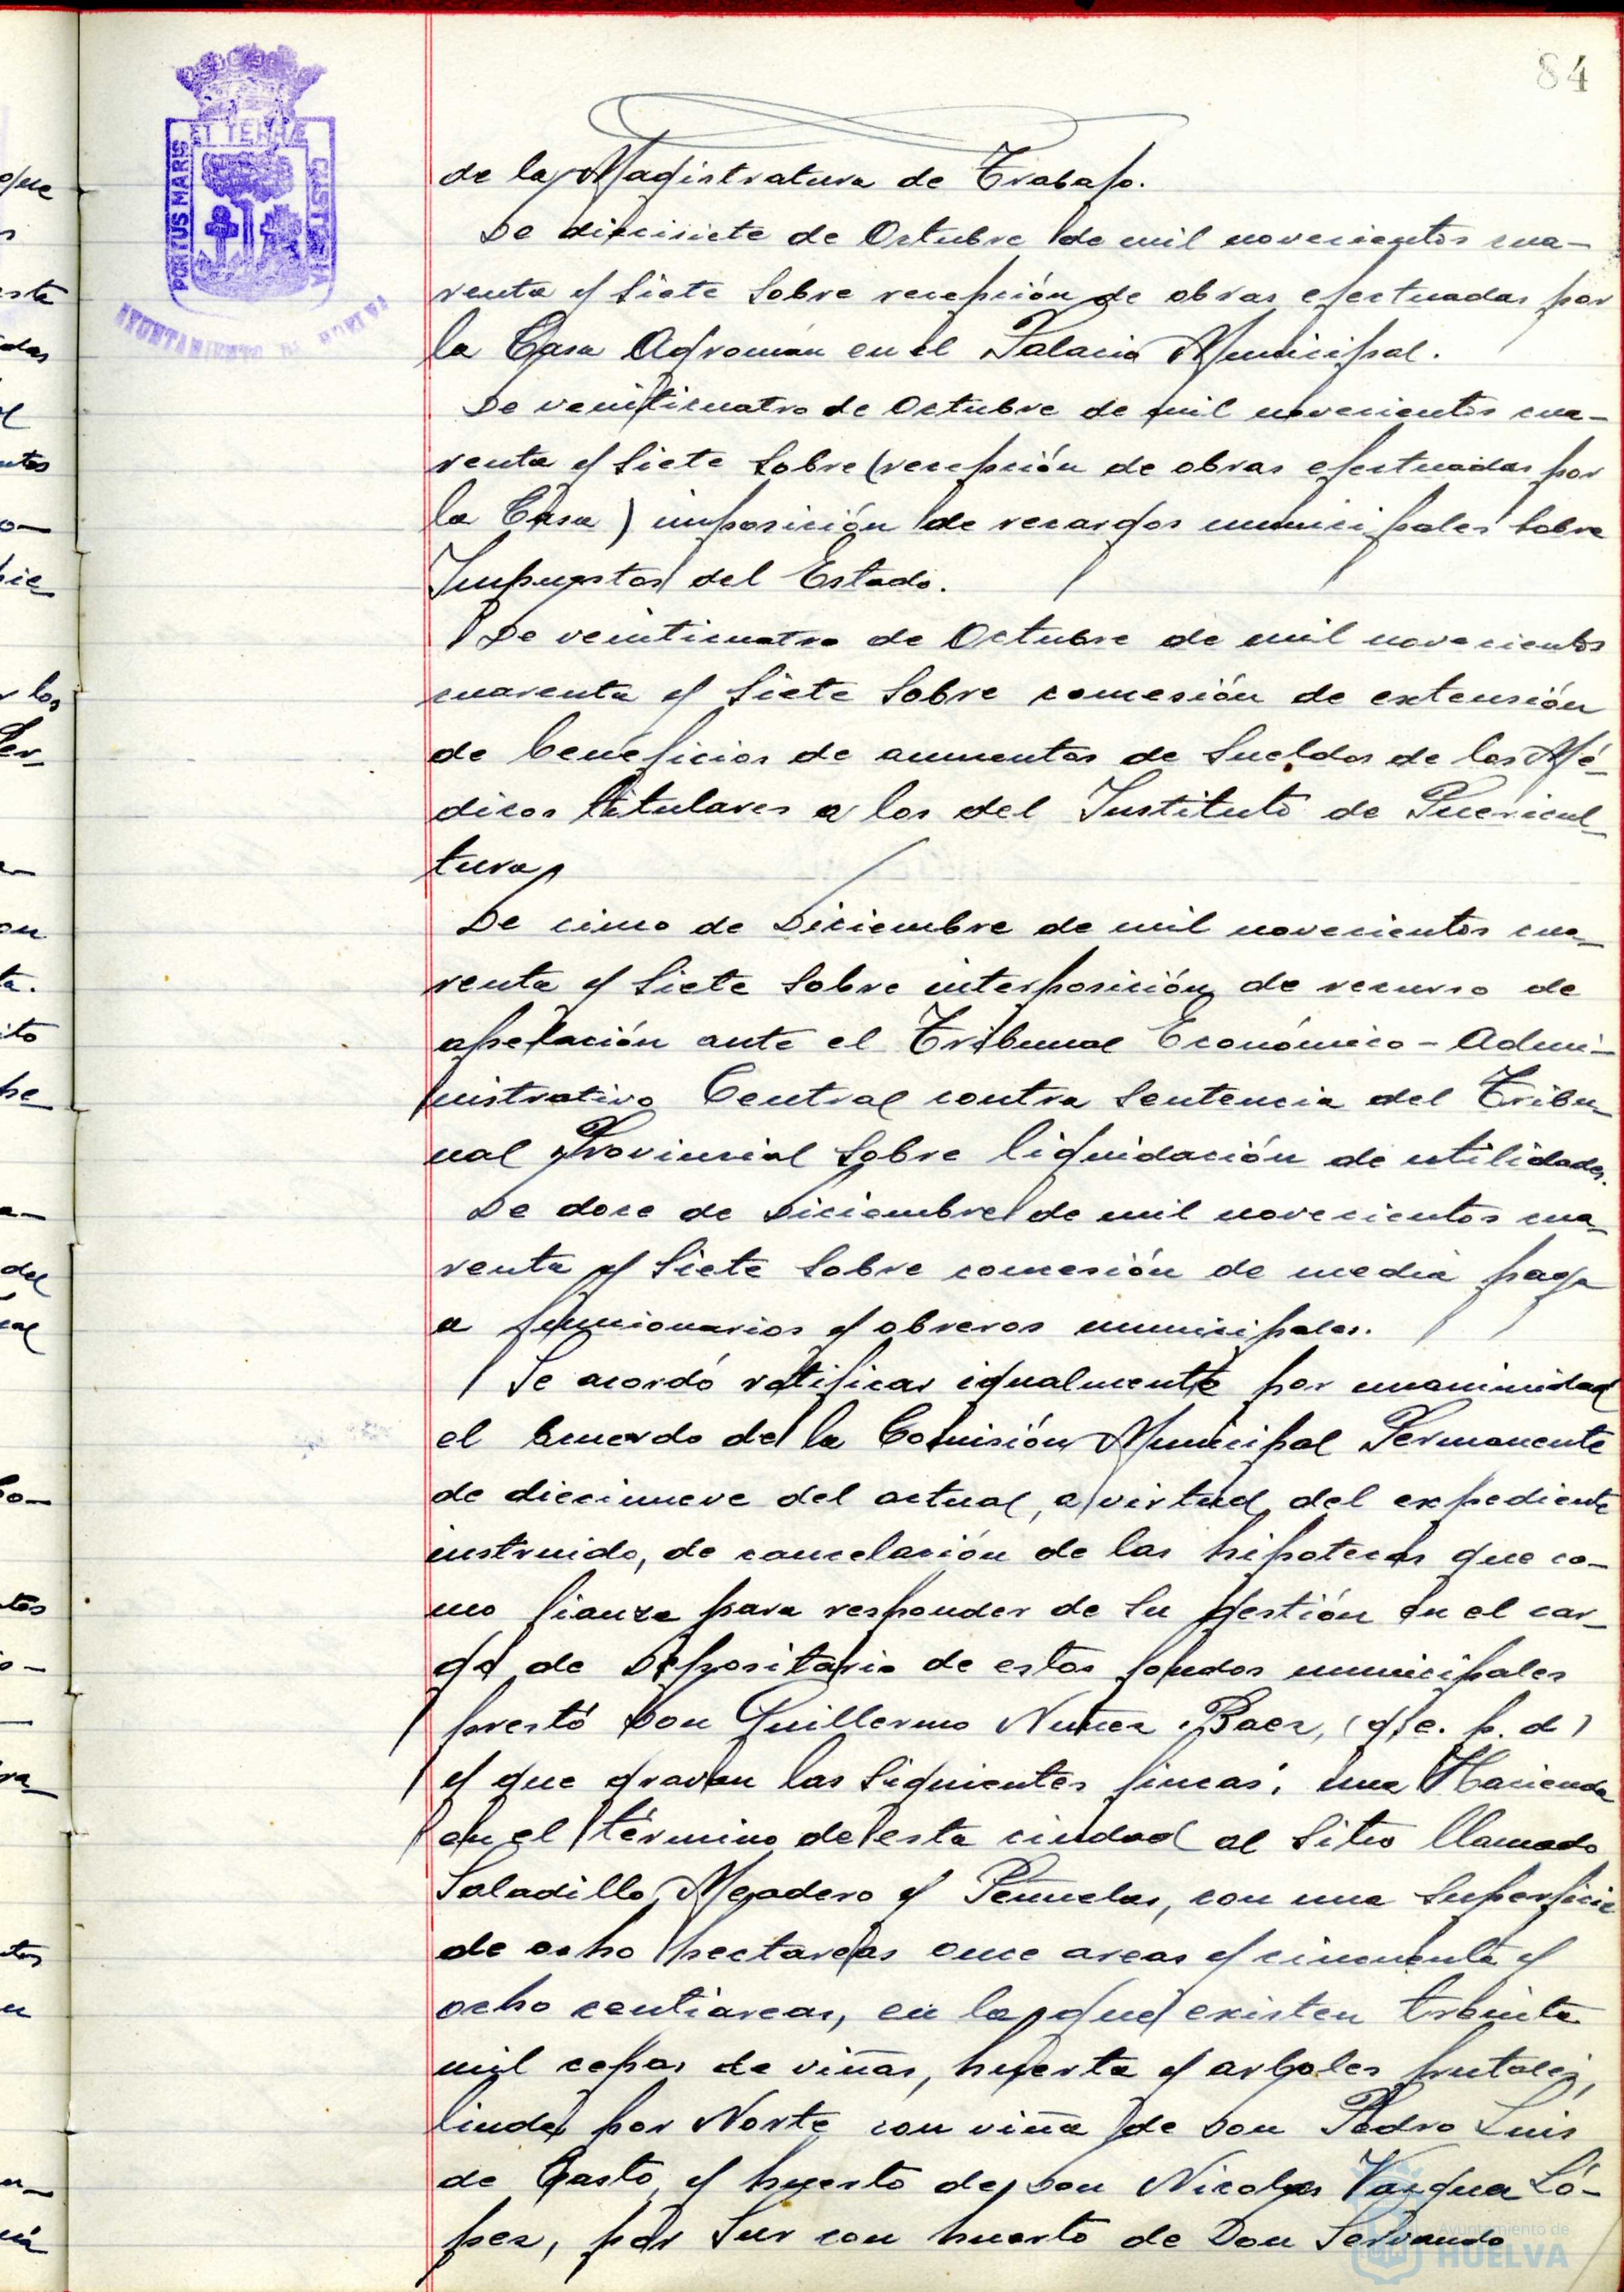 84
PORTUS MARIS ET TERRÆ CUSTODIA
AYUNTAMIENTO DE HUELVA
de la Magistratura de Trabajo.
De diecisiete de Octubre de mil novecientos cua-
renta y siete sobre recepción de obras efectuadas por
la Casa Agromán en el Palacio Municipal.
De veinticuatro de Octubre de mil novecientos cua-
renta y siete sobre (recepción de obras efectuadas por
la Casa) imposición de recargos municipales sobre
Impuestos del Estado.
De veinticuatro de Octubre de mil novecientos
cuarenta y siete sobre concesión de extensión
de beneficios de aumentos de sueldos de los Mé-
dicos titulares a los del Instituto de Puericul-
tura,
De cinco de Diciembre de mil novecientos cua-
renta y siete sobre interposición de recurso de
apelación ante el Tribunal Económico-Admi-
nistrativo Central contra sentencia del Tribu-
nal Provincial sobre liquidación de utilidades.
De doce de Diciembre de mil novecientos cua-
renta y siete sobre concesión de media paga
a funcionarios y obreros municipales.
Se acordó ratificar igualmente por unanimidad
el acuerdo de la Comisión Municipal Permanente
de diecinueve del actual, a virtud del expediente
instruido, de cancelación de las hipotecas que co-
mo fianza para responder de su gestión en el car-
go de Depositario de estos fondos municipales
prestó Don Guillermo Nuñez Baez, (q. e. p. d)
y que gravan las siguientes fincas: una Hacienda
en el término de esta ciudad al sitio llamado
Saladillo, Mojadero y Peñuelas, con una superficie
de ocho hectareas once areas y cincuenta y
ocho centiareas, en la que existen treinta
mil cepas de viñas, huerta y arboles frutales,
linda por Norte con viña de Don Pedro Luis
de Casto y huerto de Don Nicolas Vazquez Ló-
pez, por Sur con huerto de Don Servando
Ayuntamiento de
HUELVA